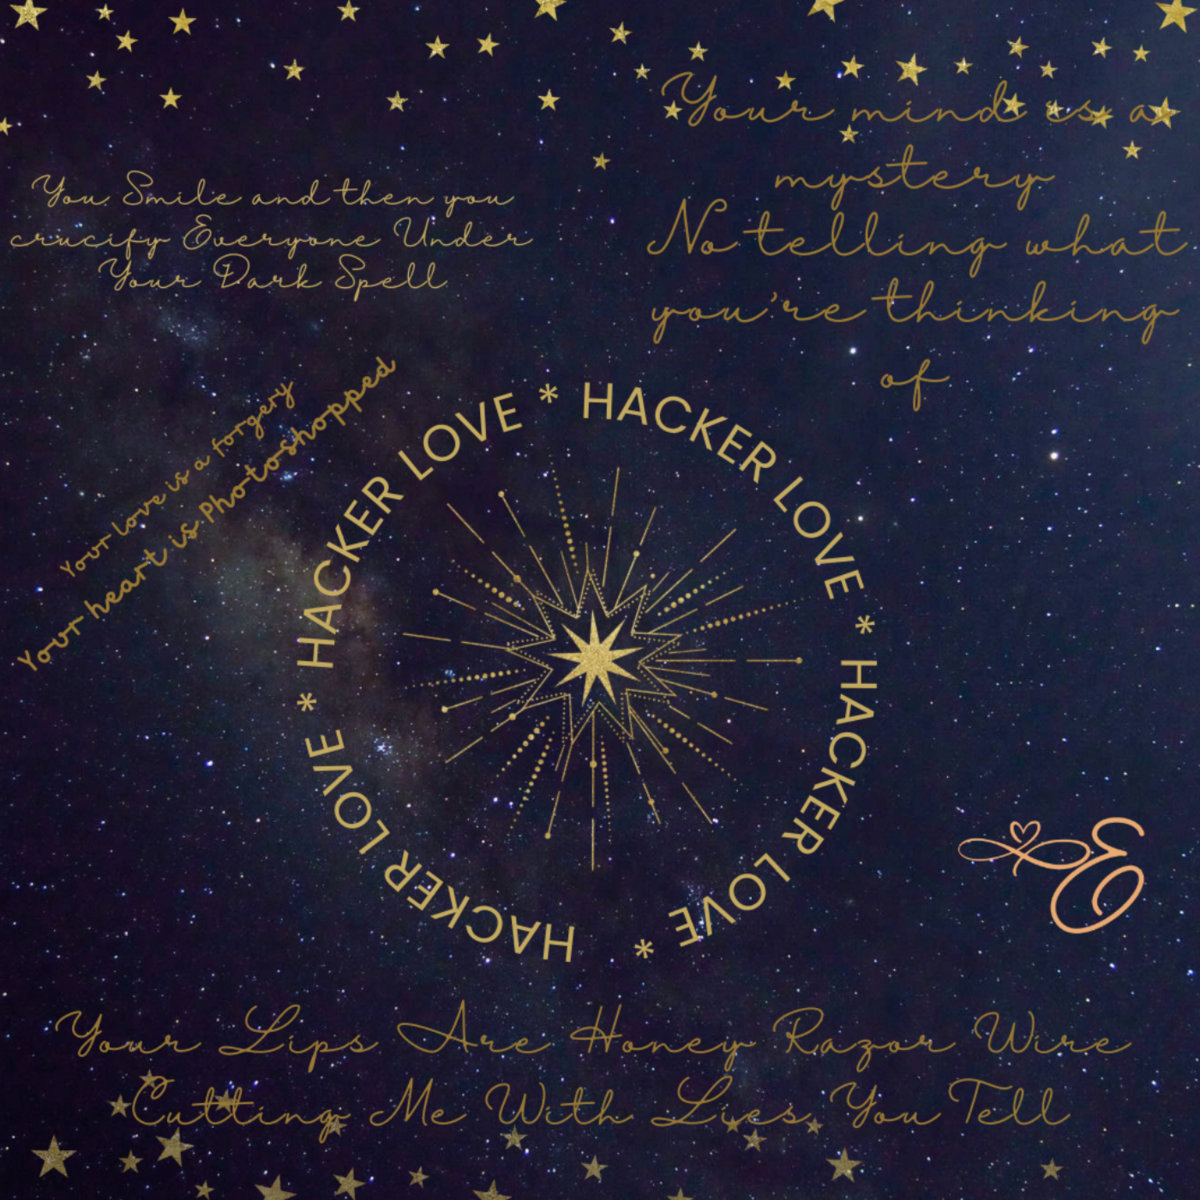 Your mind is a
mystery
No telling what
you're thinking
of
You Smile and then you
crucify Everyone Under
Your Dark Spell
Your love is a forgery
Your heart is photoshopped
HACKER LOVE * HACKER LOVE * HACKER LOVE * HACKER LOVE *
E
Your Lips Are Honey Razor Wire
Cutting Me With Lies You Tell